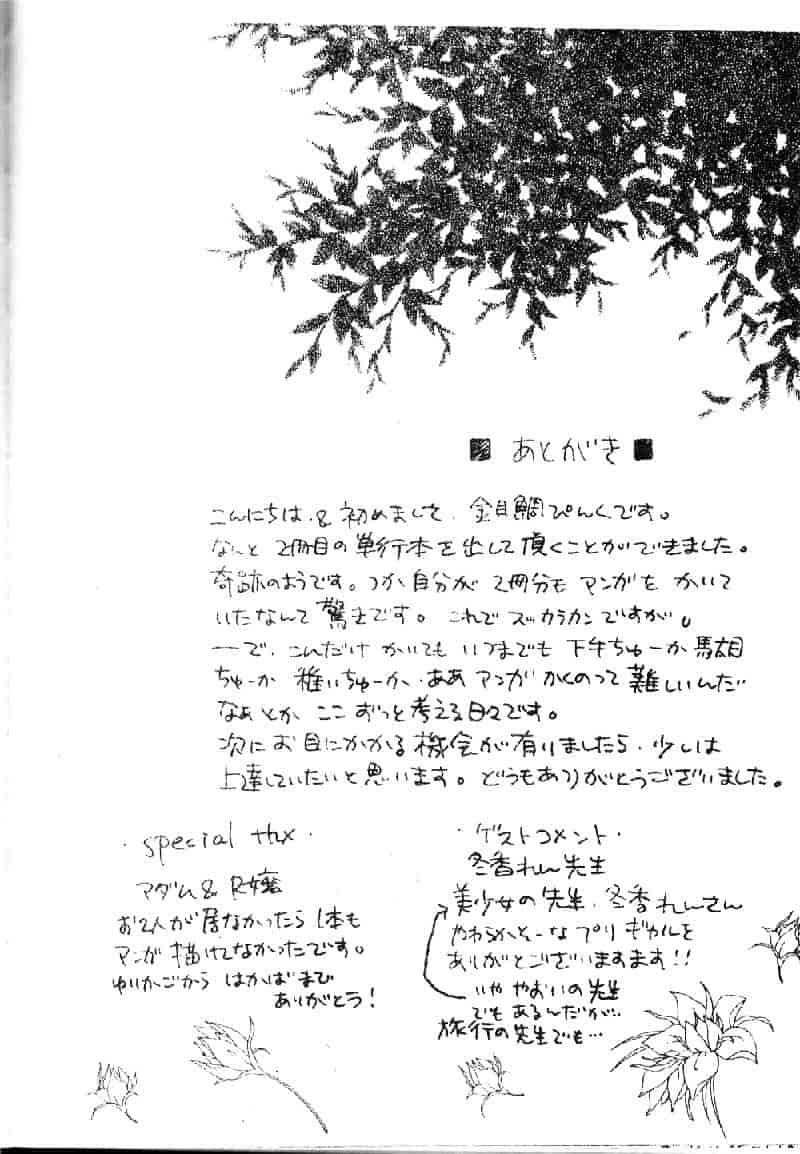 ■ あとがき ■
こんにちは、& 初めまして、金目鯛ぴんくです。
なんと 2冊目の単行本を出して頂くことができました。
奇跡のようです。つか自分が 2冊分も マンガを かいて
いたなんて 驚きです。これで スッカラカンですが。
一で、こんだけ かいても いつまでも 下手ちゅーか 馬鹿
ちゅーか 稚いちゅーか、ああ マンガ かくのって 難しいんだ
なぁ とか ここ ずっと考える日々です。
次に お目にかかる機会が有りましたら、少しは
上達していたいと思います。どうもありがとうございました。
・special thx・
マダム& R嬢
お2人が居なかったら 1本も
マンガ 描けてなかったです。
ゆりかごから はかばまで
ありがとう!
・ゲストコメント・
冬香れん先生
美少女の先生、冬香れんさん
やわらかそーな プリ ギャルを
ありがとございますます!!
いや やおいの先生
でも あるんだが…
旅行の先生でも…